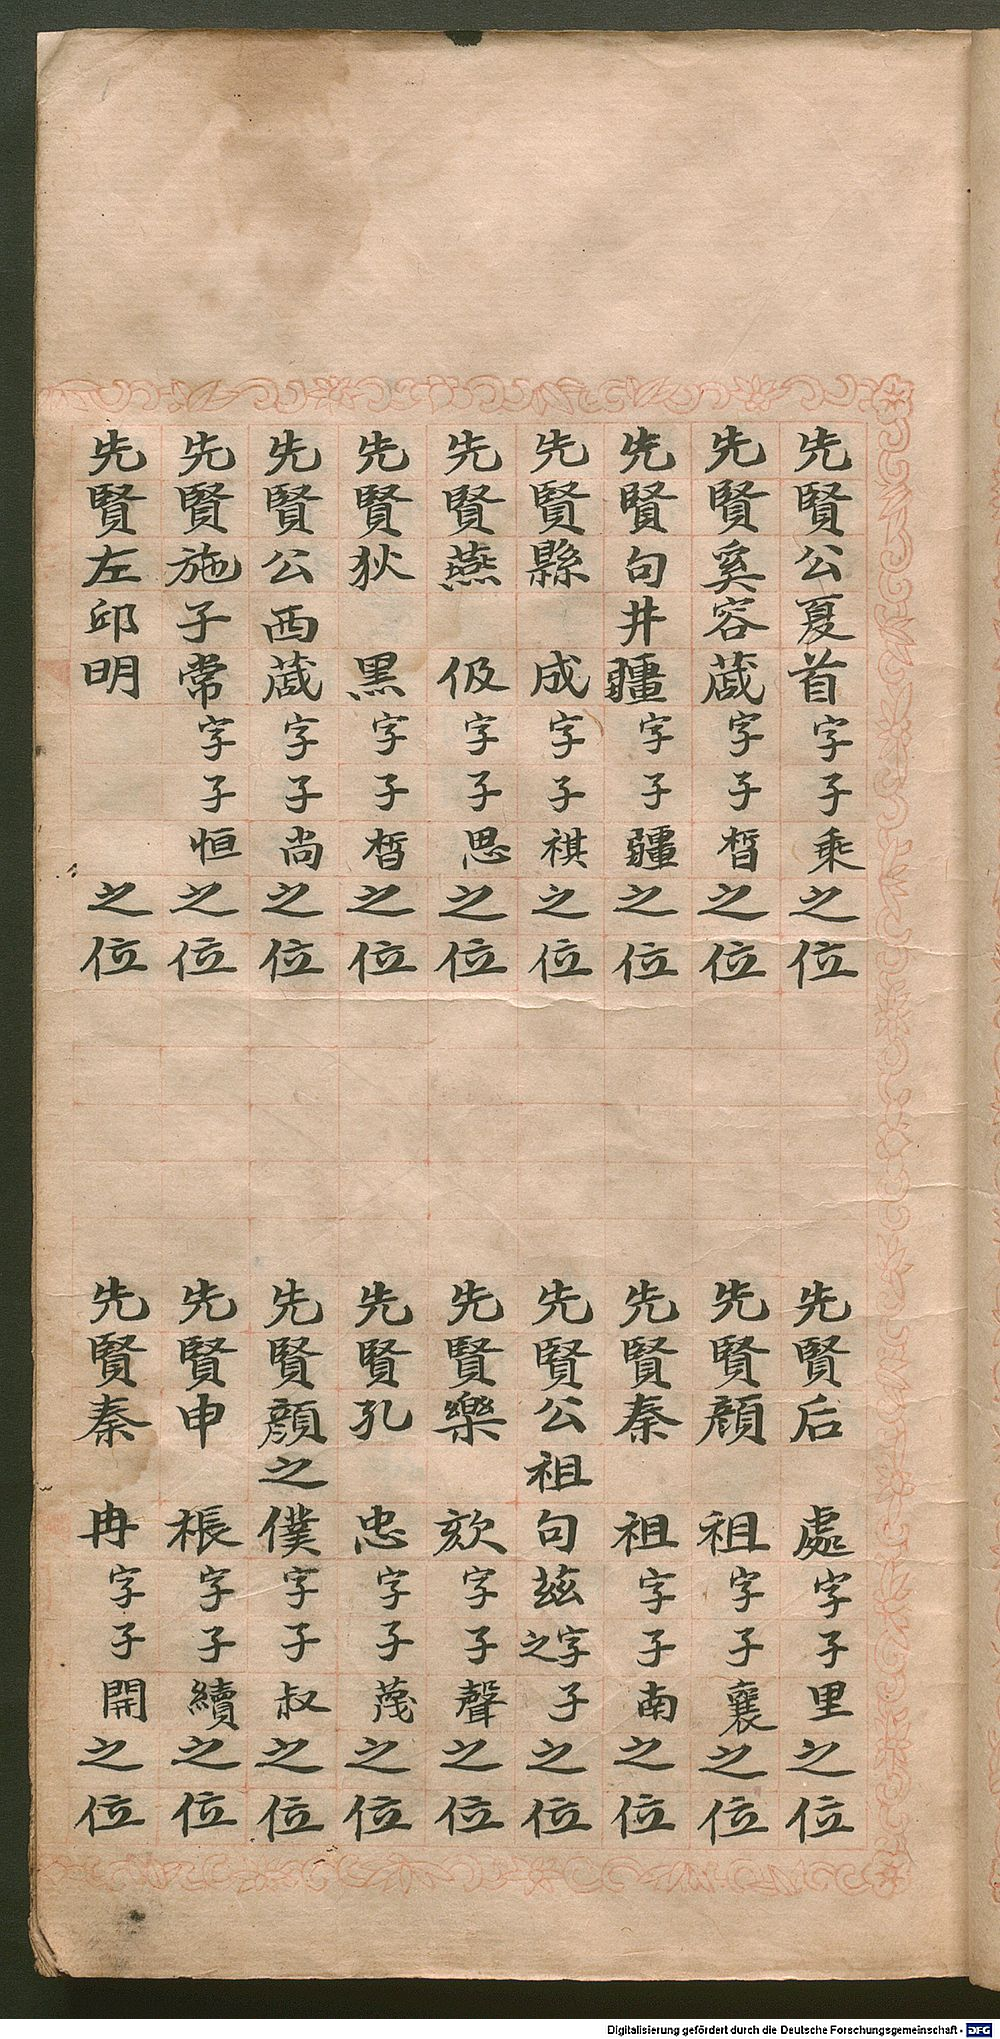 先賢公夏首字子乘之位
先賢奚容蒧字子晳之位
先賢句井疆字子疆之位
先賢縣成字子祺之位
先賢燕伋字子思之位
先賢狄黑字子晳之位
先賢公西蒧字子尚之位
先賢施子常字子恒之位
先賢左邱明之位
先賢后處字子里之位
先賢顏祖字子襄之位
先賢秦祖字子南之位
先賢公祖句茲字子之之位
先賢樂欬字子聲之位
先賢孔忠字子蔑之位
先賢顏之僕字子叔之位
先賢申棖字子續之位
先賢秦冉字子開之位
Digitalisierung gefördert durch die Deutsche Forschungsgemeinschaft - DFG